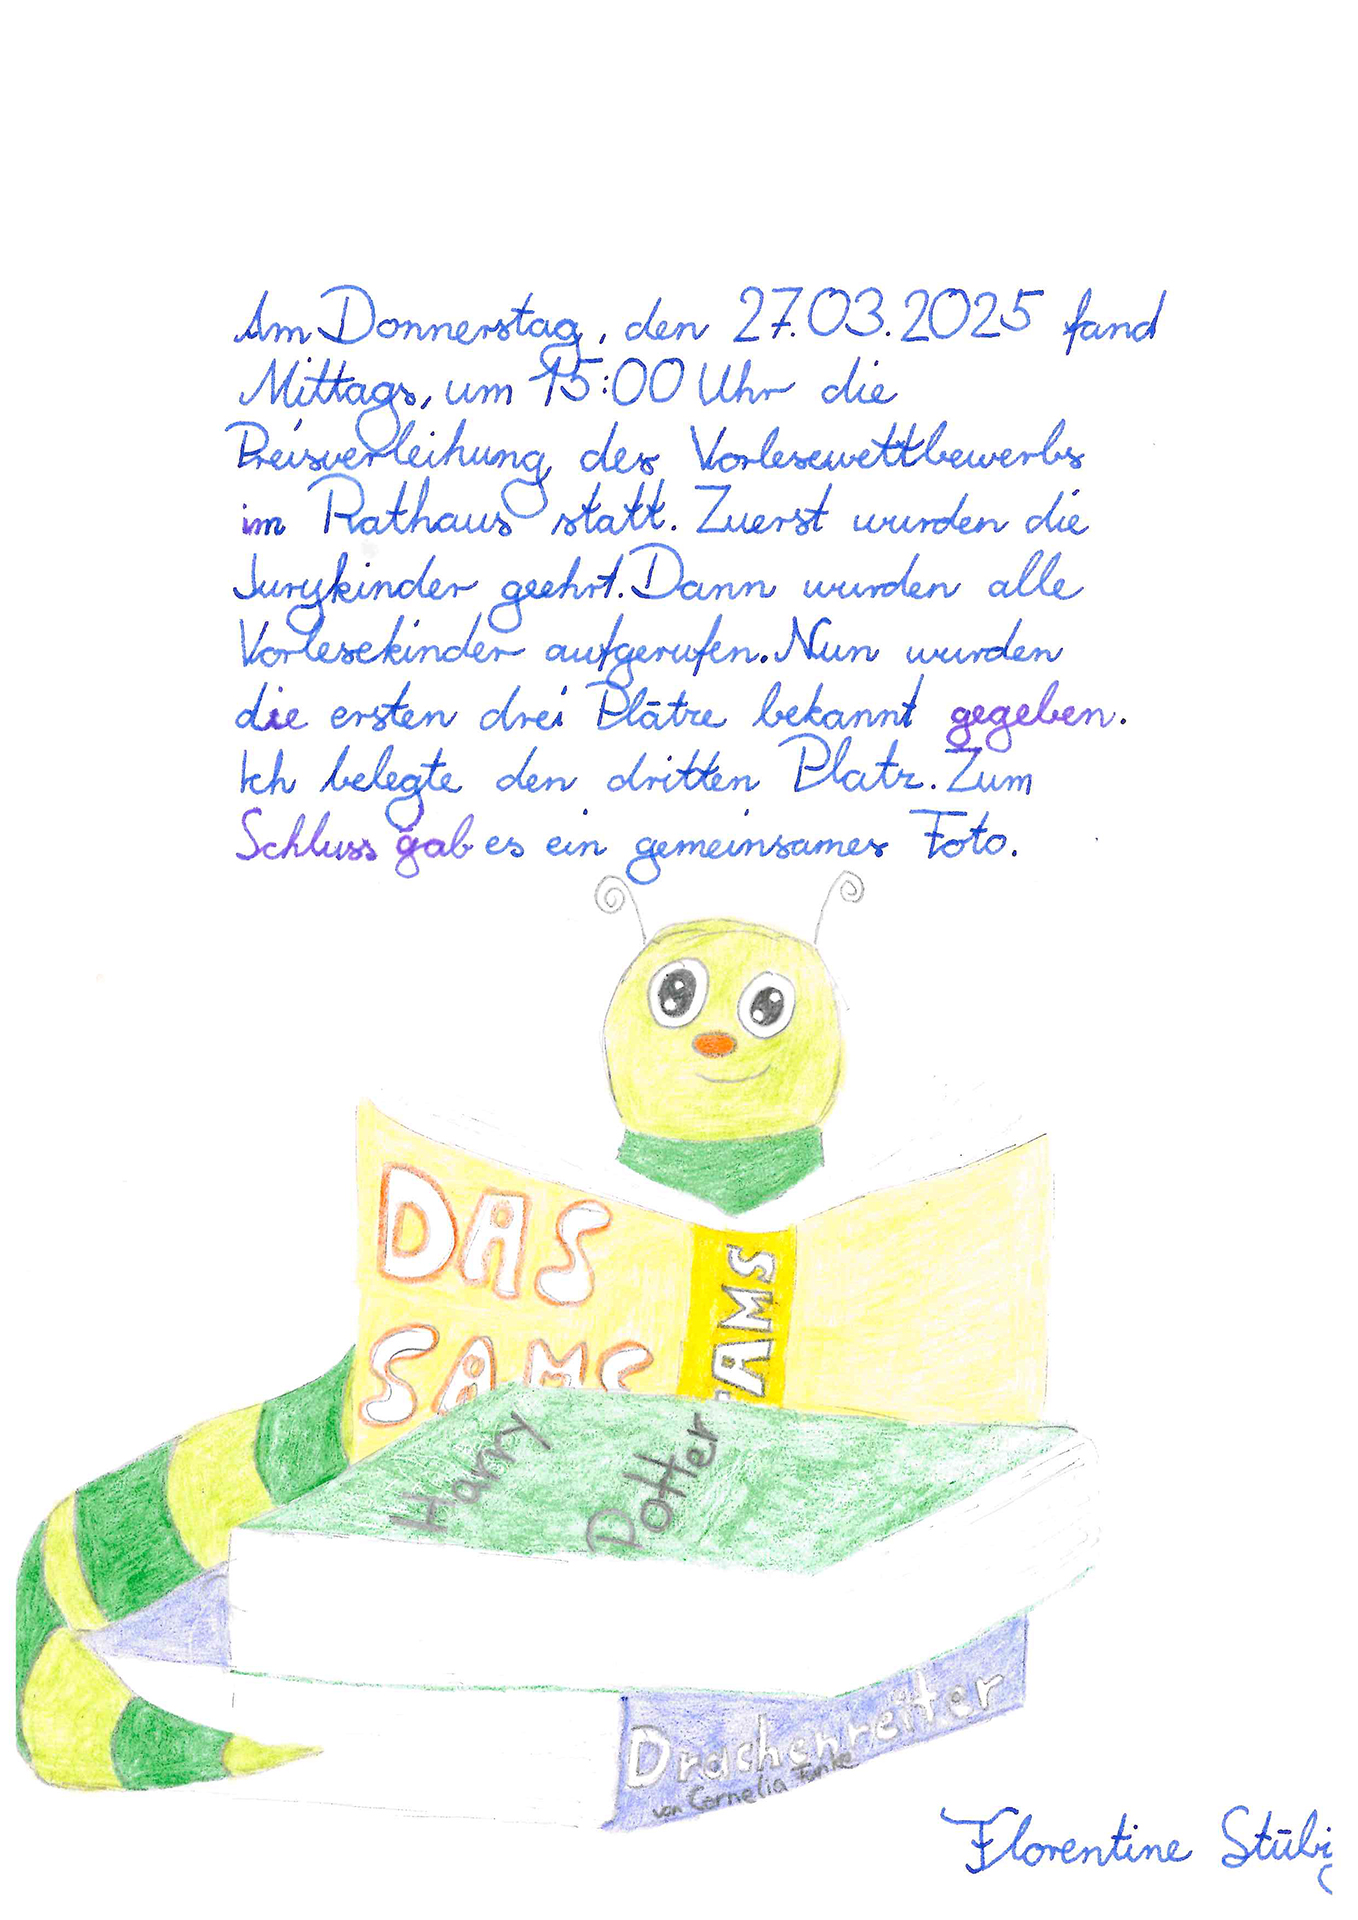 Am Donnerstag, den 27.03.2025 fand
Mittags, um 15:00 Uhr die
Preisverleihung des Vorlesewettbewerbs
im Rathaus statt. Zuerst wurden die
Jurykinder geehrt. Dann wurden alle
Vorlesekinder aufgerufen. Nun wurden
die ersten drei Plätze bekannt gegeben.
Ich belegte den dritten Platz. Zum
Schluss gab es ein gemeinsames Foto.
DAS
SAMS
SAMS
Harry
Potter
Drachenreiter
von Cornelia Funke
Florentine Stübig